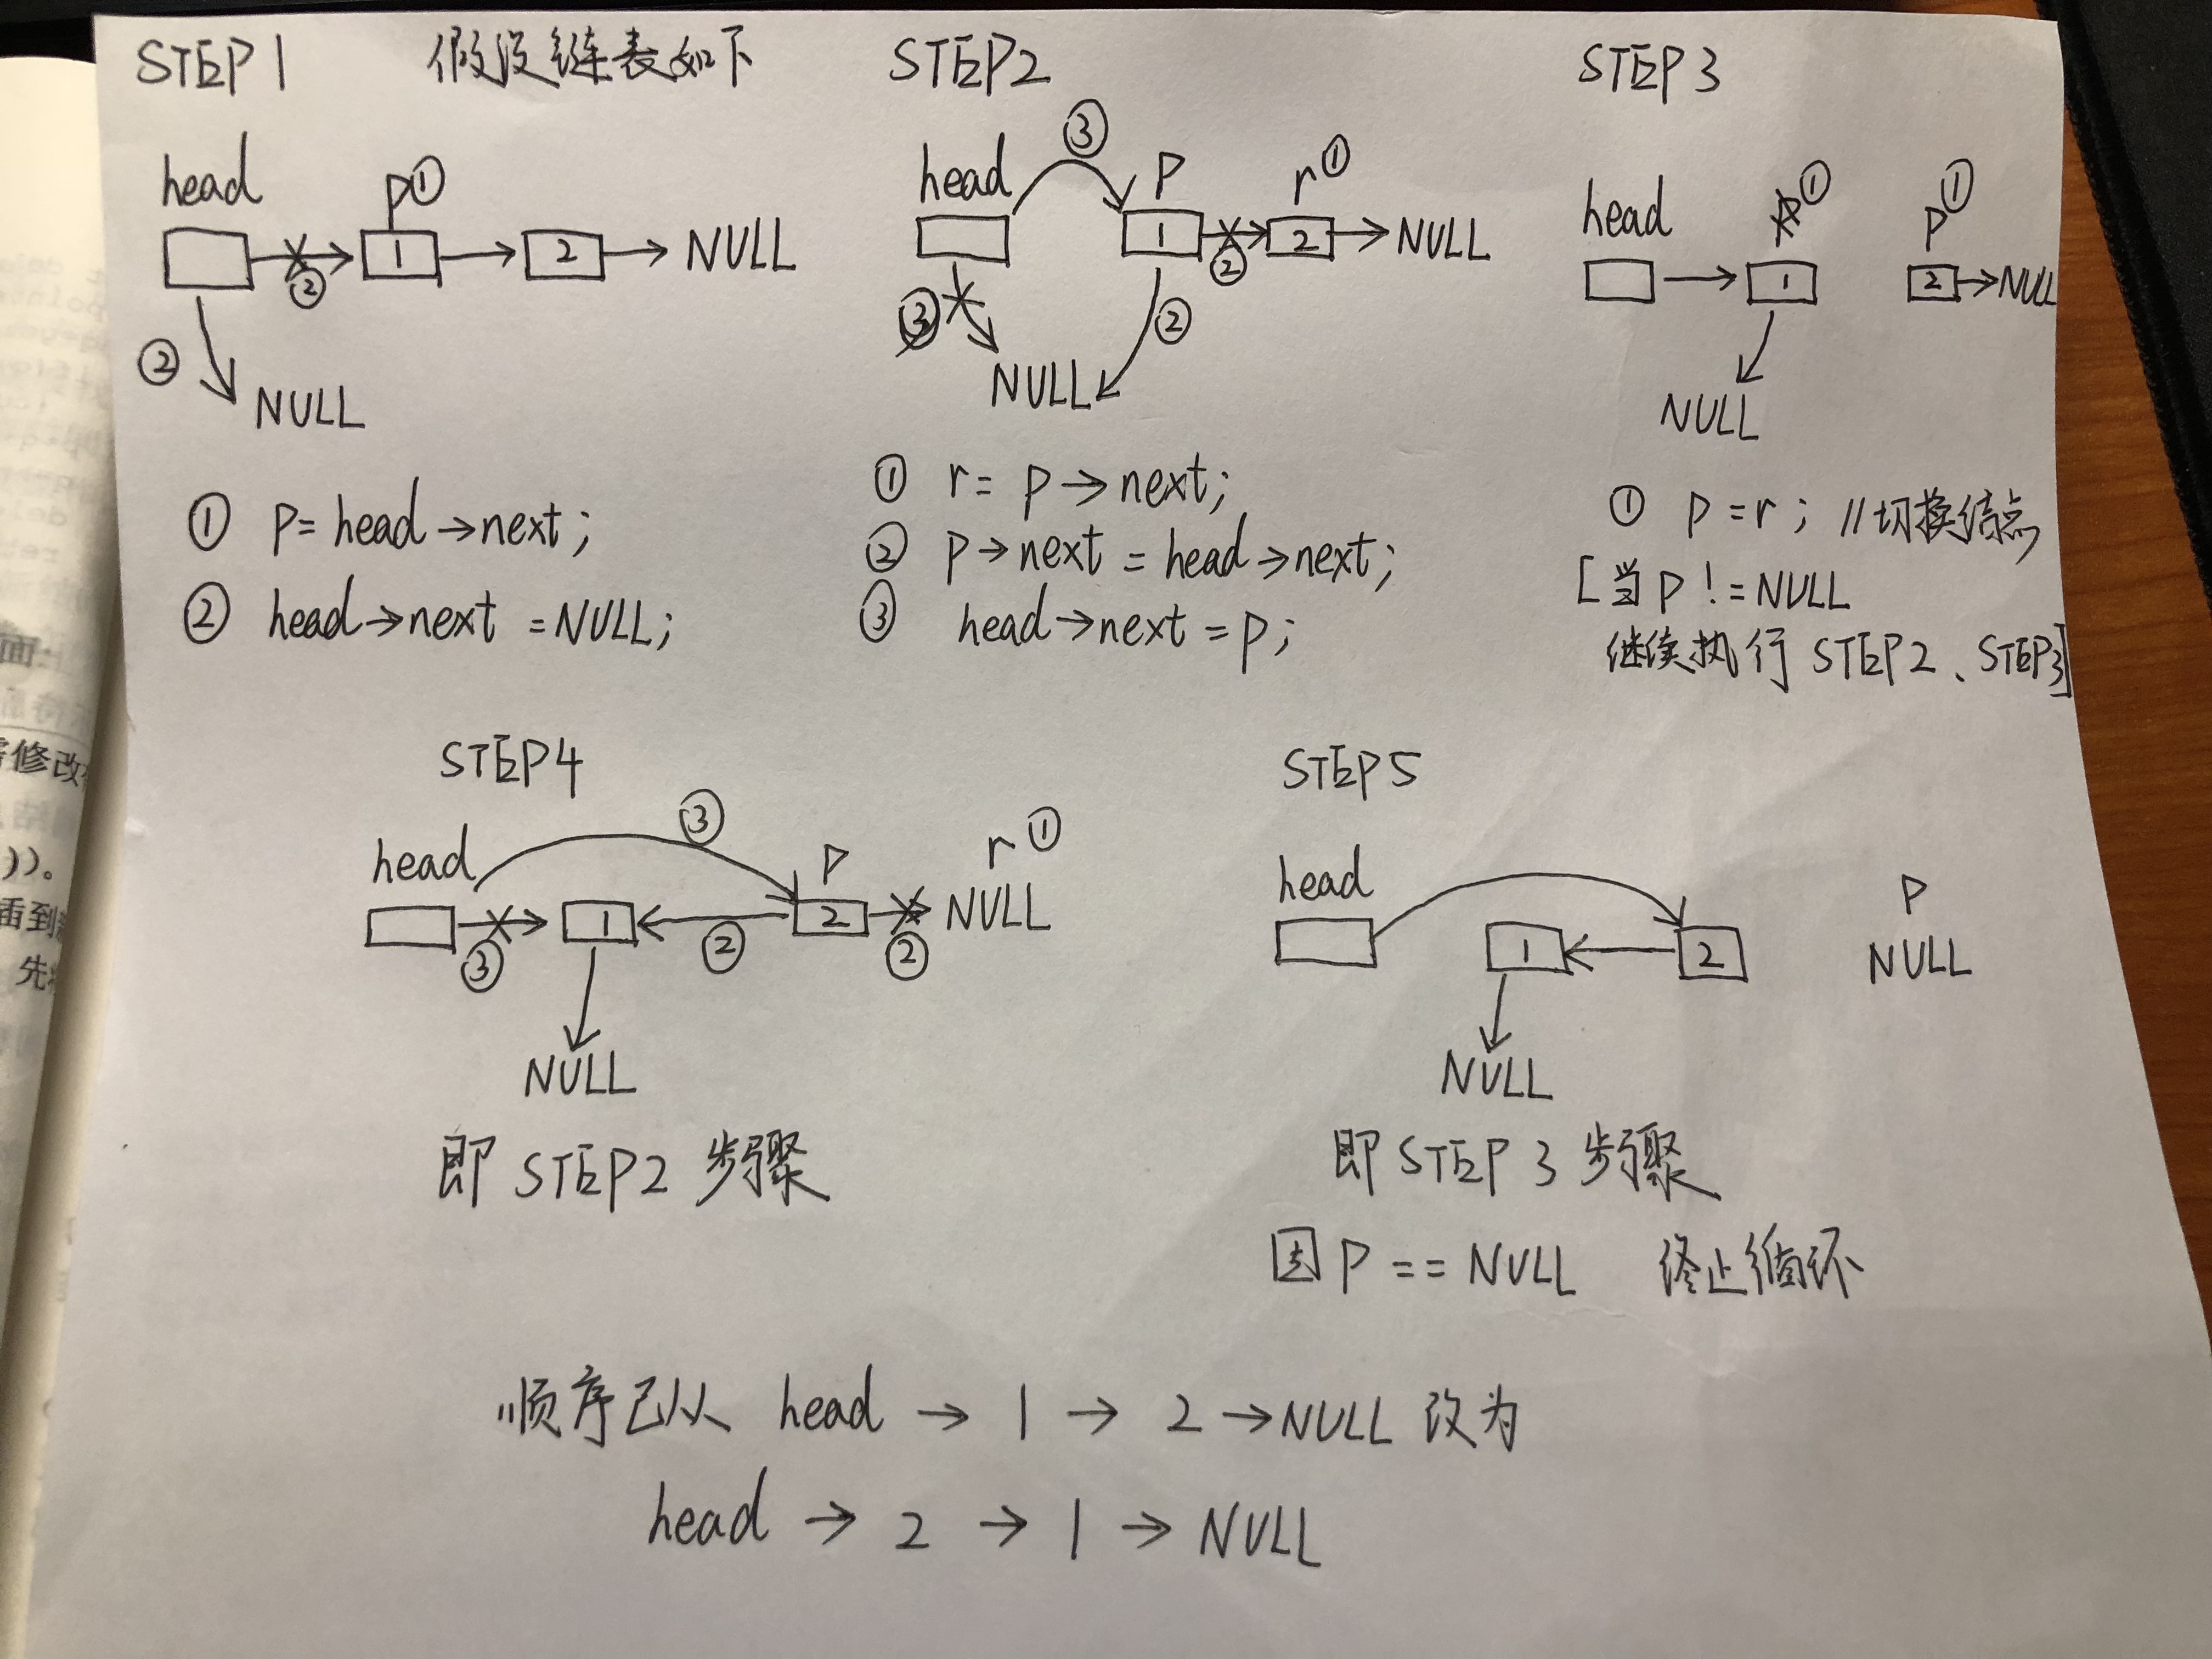 STEP1 假设链表如下
head p①
② 1 2 NULL
② NULL
① p = head→next;
② head→next = NULL;
STEP2
③
head p r①
1 ② 2 NULL
③ ②
NULL
① r = p→next;
② p→next = head→next;
③ head→next = p;
STEP3
head ① p①
1 2 NULL
NULL
① p = r; //切换结点
[当p != NULL
继续执行 STEP2、STEP3]
STEP4
③
head p r①
③ 1 ② 2 ② NULL
NULL
即 STEP2 步骤
STEP5
head p
1 2 NULL
NULL
即 STEP3 步骤
因 P == NULL 终止循环
顺序已从 head → 1 → 2 → NULL 改为
head → 2 → 1 → NULL
修改
))。
先